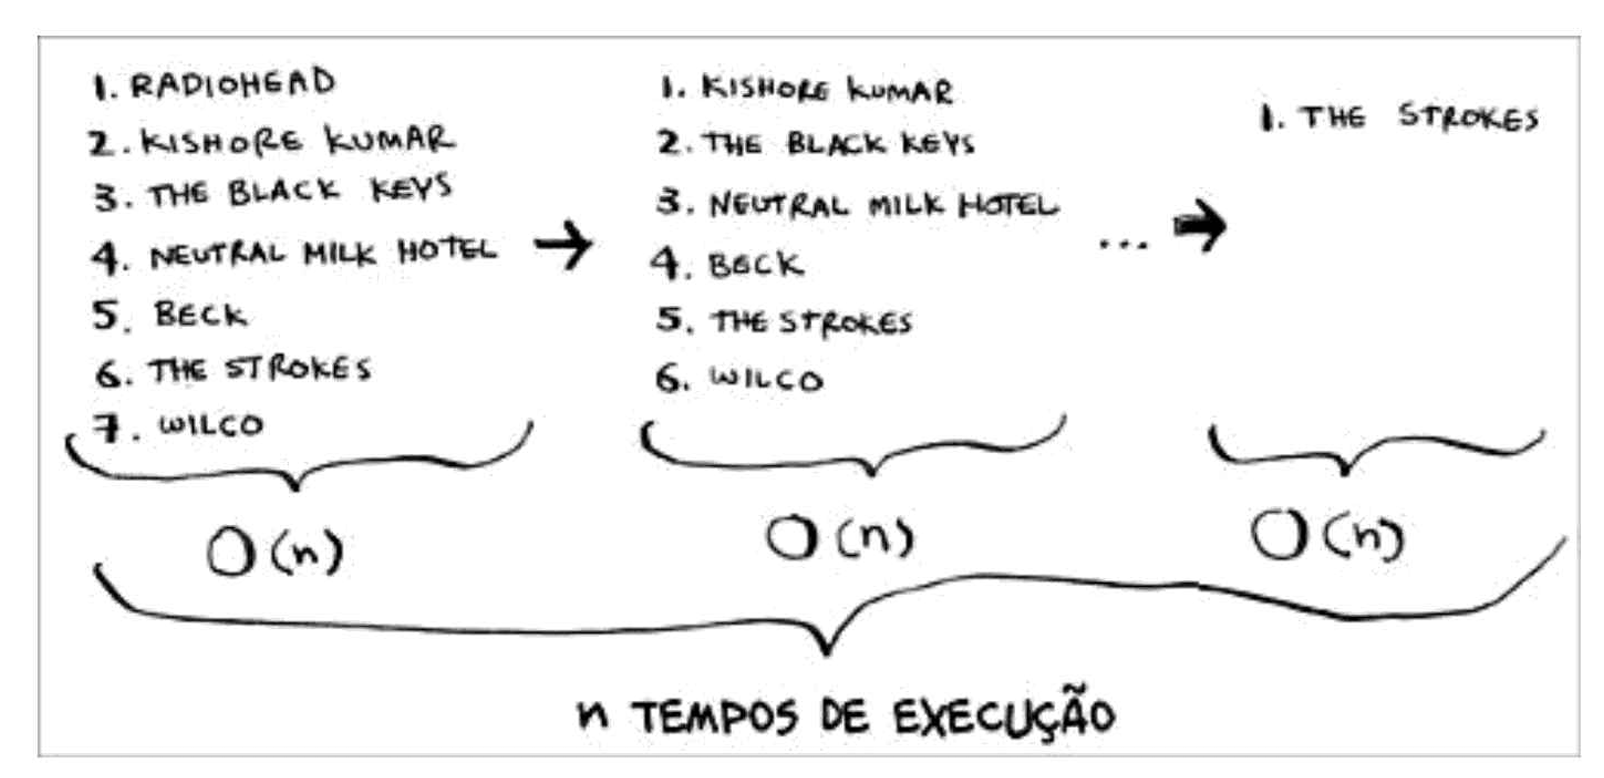 1. RADIOHEAD
2. KISHORE KUMAR
3. THE BLACK KEYS
4. NEUTRAL MILK HOTEL
5. BECK
6. THE STROKES
7. WILCO
O(n)
1. KISHORE KUMAR
2. THE BLACK KEYS
3. NEUTRAL MILK HOTEL
4. BECK
5. THE STROKES
6. WILCO
O(n)
...
1. THE STROKES
O(n)
n TEMPOS DE EXECUÇÃO